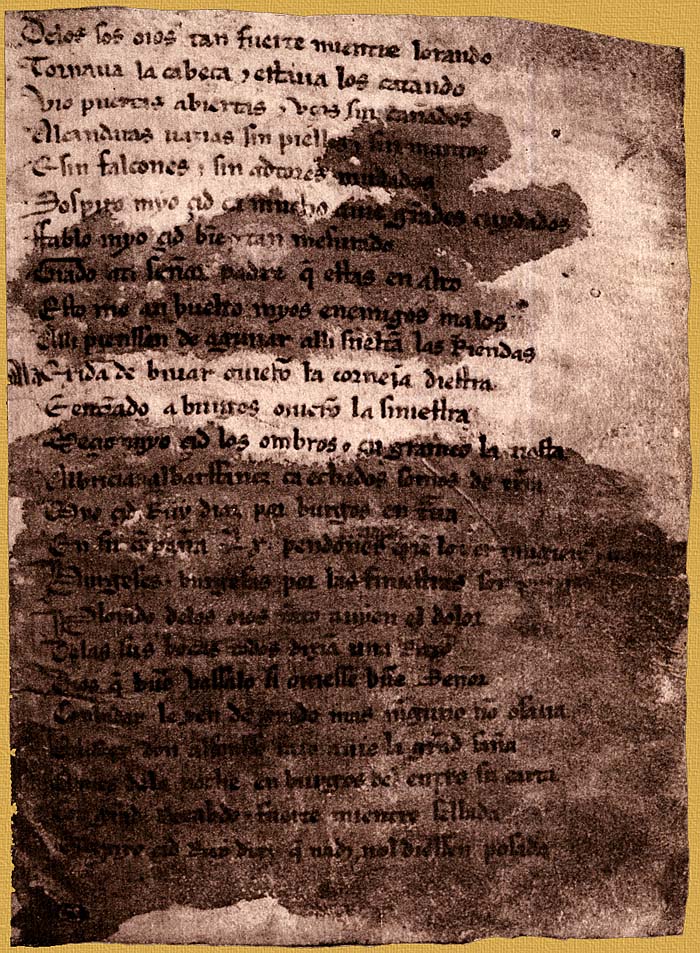 Delos sos oios tan fuerte mientre lorando
Tornaua la cabeça & estaua los catando
Vio puertas abiertas & vços sin cañados
Alcandaras uazias sin pielles & sin mantos
E sin falcones & sin adtores mudados
Sospiro myo çid ca mucho auie grãdes cuydados
Fablo myo çid biẽ & tan mesurado
Grado ati señor padre q̃ estas en alto
Esto me an buelto myos enemigos malos
Alli pienssan de aguiiar alli sueltã las Riendas
Ala Exida de biuar ouierõ la corneia diestra
E entrãdo a burgos ouierõ la siniestra
Meçio myo çid los ombros & engrameo la tiesta
Albricia albarffanez ca echados somos de tierra
Myo çid Ruy diaz por burgos en
En su cõpaña .Lx. pendones
Burgeses & burgesas por las finiestras son
Plorãdo delos oios tãto auyen el dolor
Delas sus bocas todos diziã una Razõ
Dios q̃ buẽ vassalo si ouiesse buẽ Señor
Conbidar le yen de grado mas ninguno nõ osaua
El Rey don alfonsso tãto auie la grãd saña
Antes dela noche en burgos del entro su carta
Con grãd Recabdo & fuerte mientre sellada
Que a myo çid Ruy diaz q̃ nadi nol diessen posada